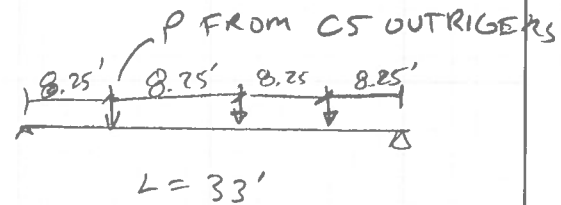 P FROM C5 OUTRIGERS
8.25' 8.25' 8.25 8.25'
L = 33'